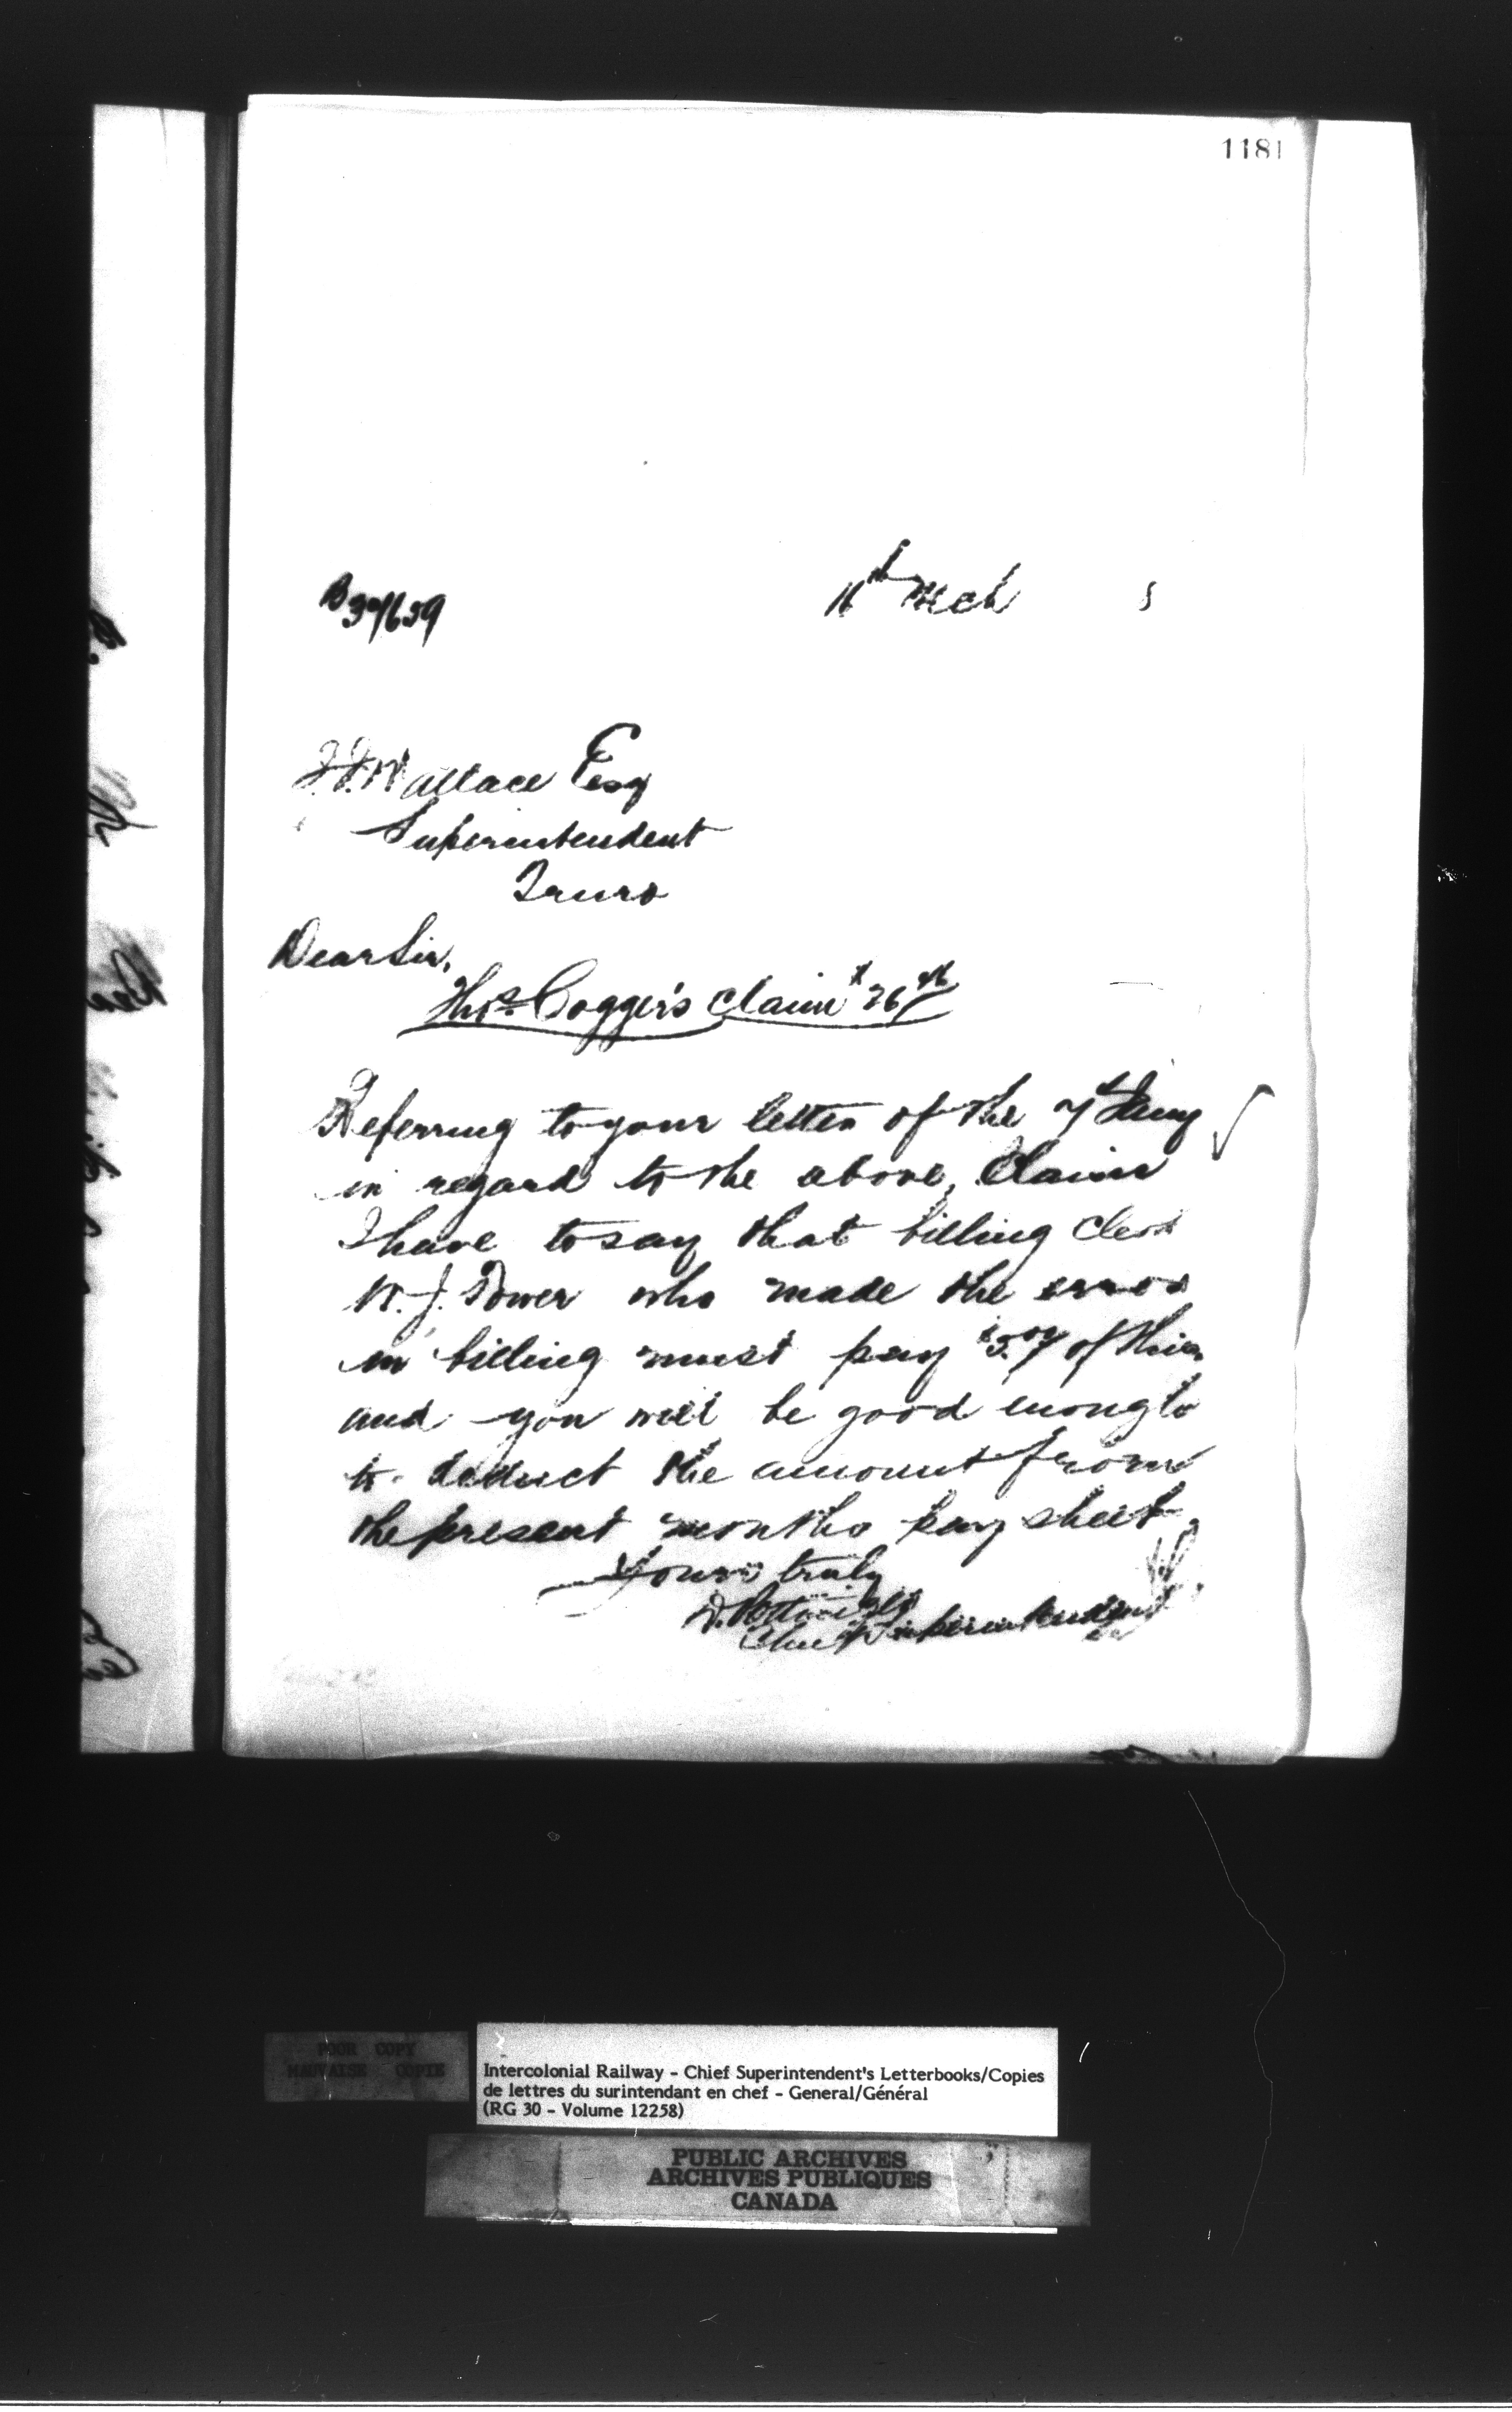 1181
B 30/659
16th Mch 5
J.J. Wallace Esq
Superintendent
Truro
Dear Sir,
Thos. Cogger's Claim $26
Referring to your letter of the 7th Jany
in regard to the above, Claim
I have to say that billing Clerk
W. J. Power who made the error
in billing must pay $5.07 of this
and you will be good enough
to deduct the amount from
the present months pay sheet.
Yours truly
D. Pottinger
Chief Superintendent
POOR COPY
MAUVAISE COPIE
Intercolonial Railway - Chief Superintendent's Letterbooks/Copies
de lettres du surintendant en chef - General/Général
(RG 30 - Volume 12258)
PUBLIC ARCHIVES
ARCHIVES PUBLIQUES
CANADA